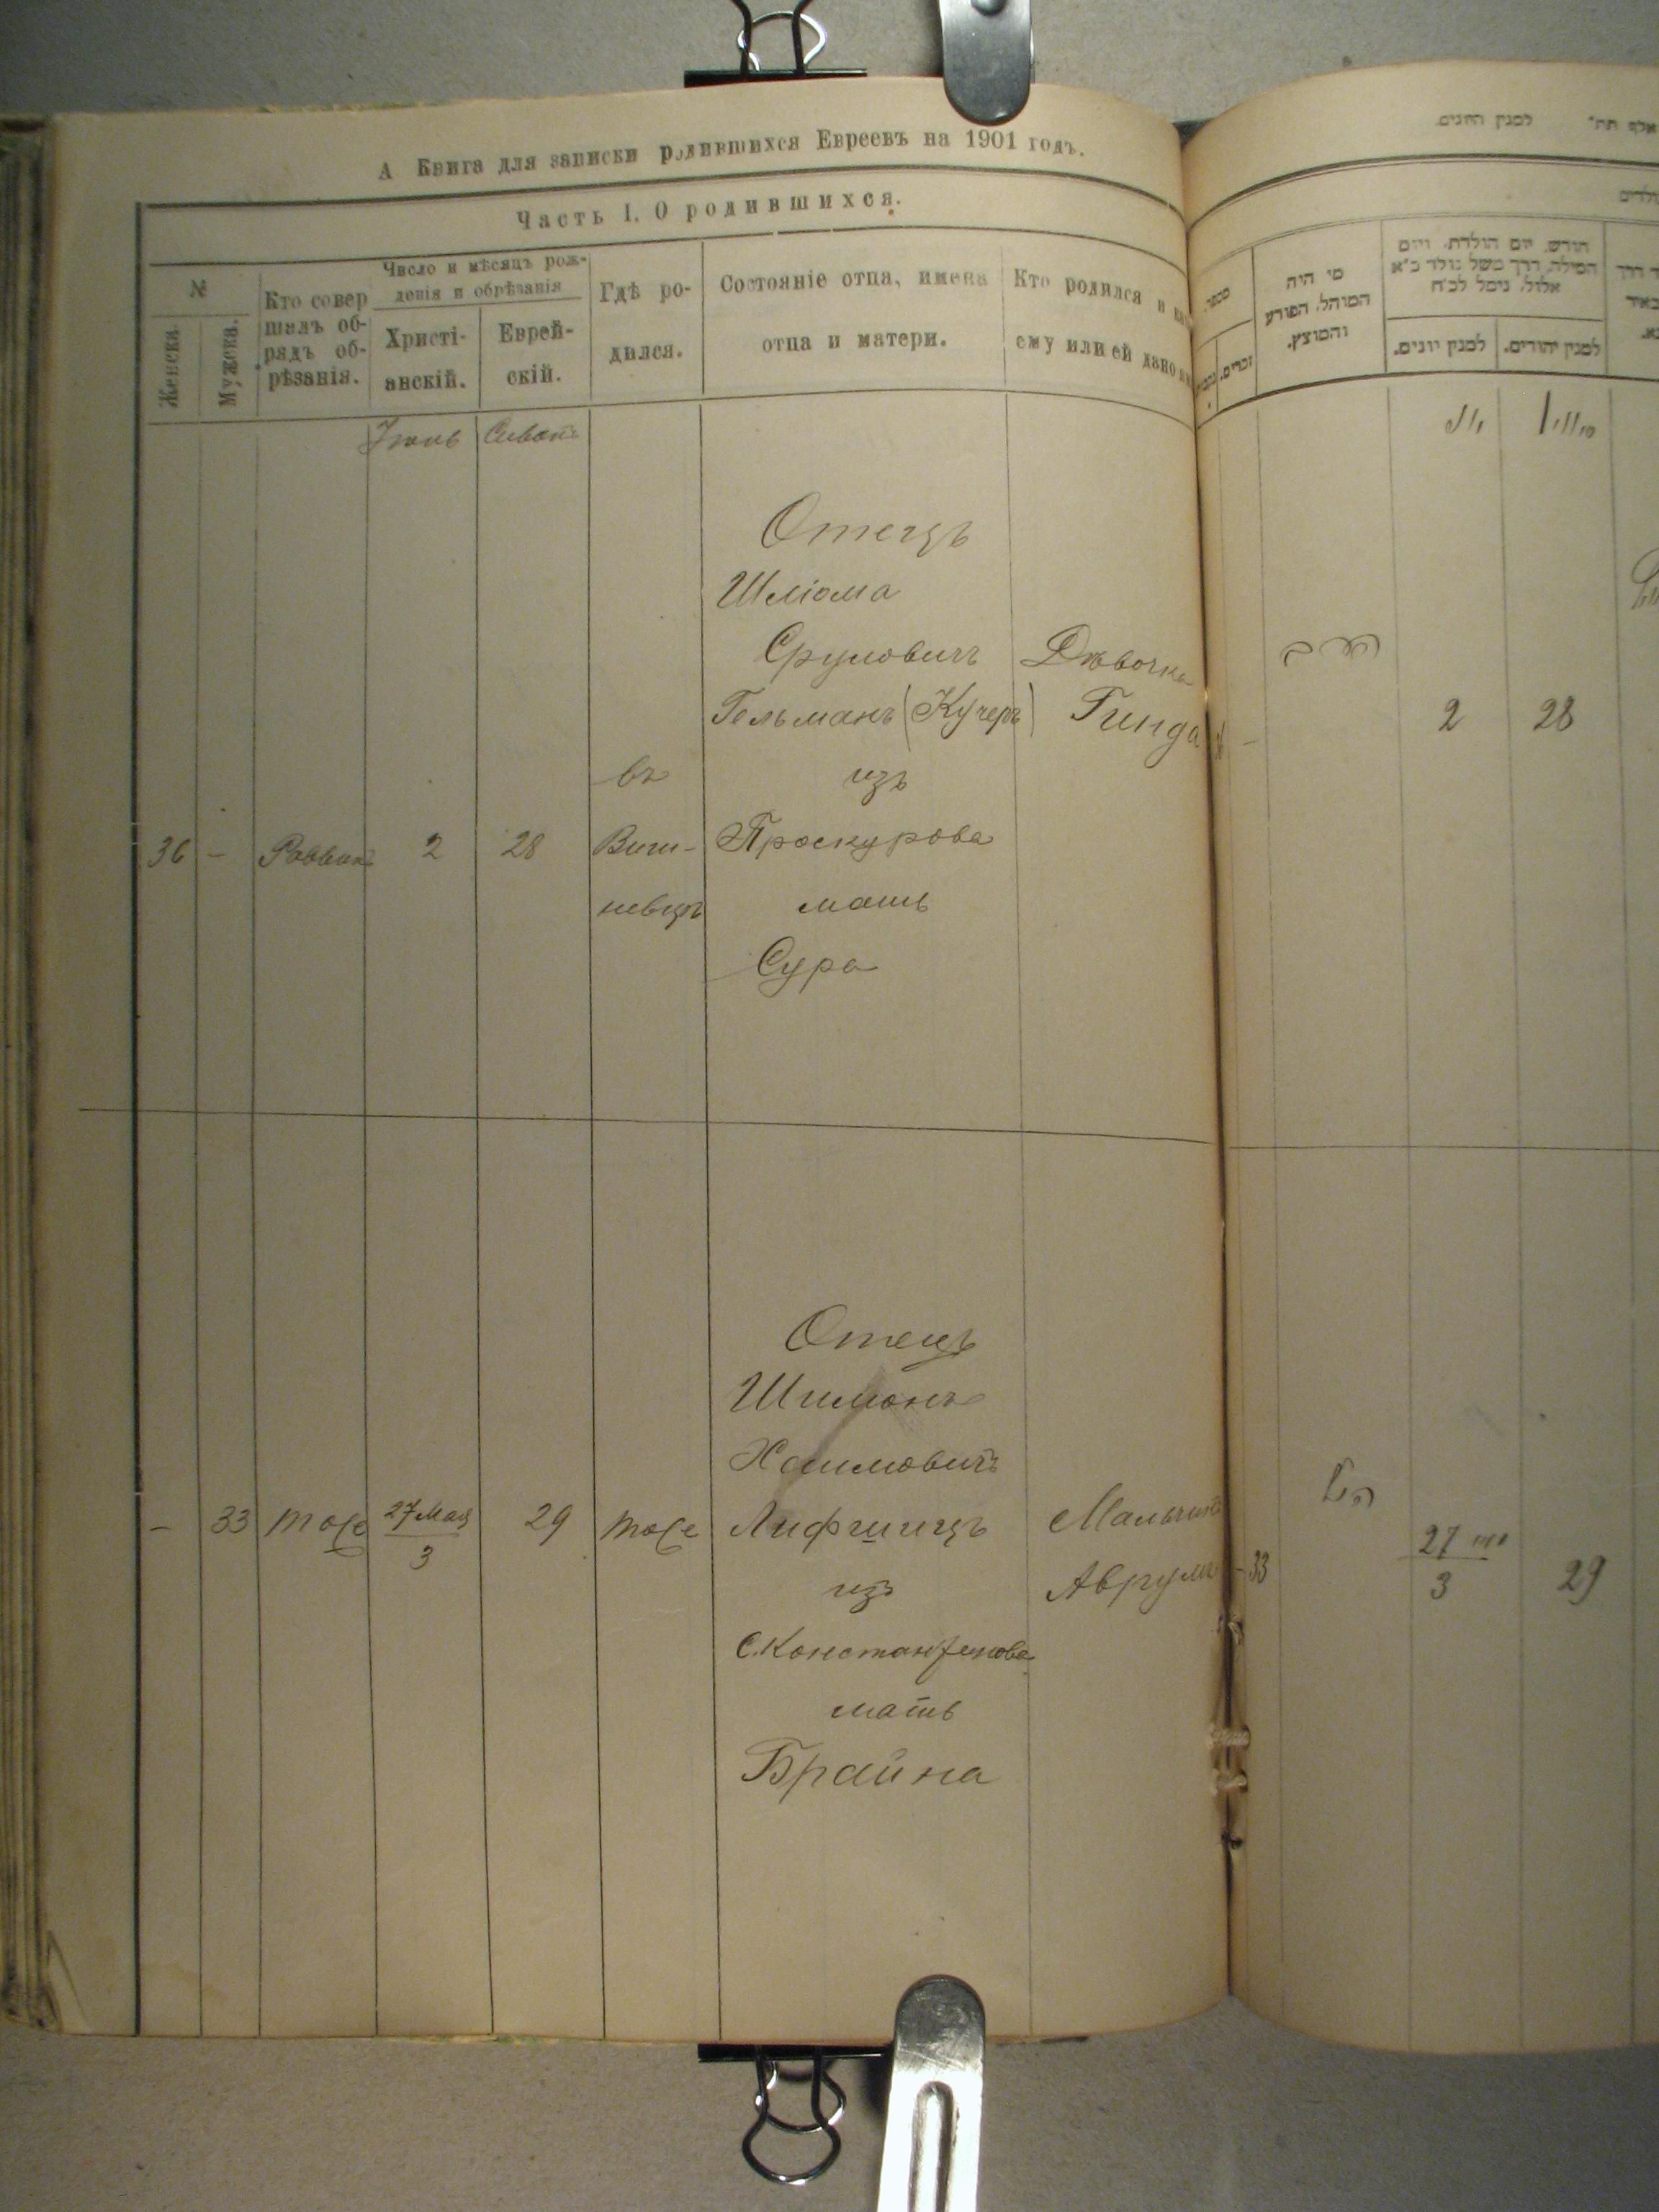 А Книга для записки родившихся Евреевъ на 1901 годъ.
Часть I. О родившихся.
№
Женска.
Мужска.
Кто совер
шалъ об-
рядъ об-
рѣзанія.
Число и мѣсяцъ рож-
денія и обрѣзанія
Христі-
анскій.
Еврей-
скій.
Гдѣ ро-
дился.
Состояніе отца, имена
отца и матери.
Кто родился и
ему или ей дано
Іюнь Сиванъ
36 - Раввинъ 2 28
въ
Виш-
невцѣ
Отецъ
Шліома
Сруловичъ
Гельманъ (Кучеръ)
изъ
Проскурова
мать
Сура
Дѣвочка
Гинда
- 33 тоже 27 Мая
3
29 тоже
Отецъ
Шимонъ
Хаимовичъ
Лифшицъ
изъ
С. Константинова
мать
Брайна
Мальчикъ
Аврумъ
למנין היונים.
מספר
זכרים.
מי היה
המוהל, הפורע
והמוצץ.
חודש, יום הולדת, ויום
המילה, דרך משל נולד כ"א
אלול, נימל לכ"ח
למנין יונים.
למנין יהודים.
יוני
סיון
הרב
- 2 28
- 33
הנ"ל
27 מאי
3
29